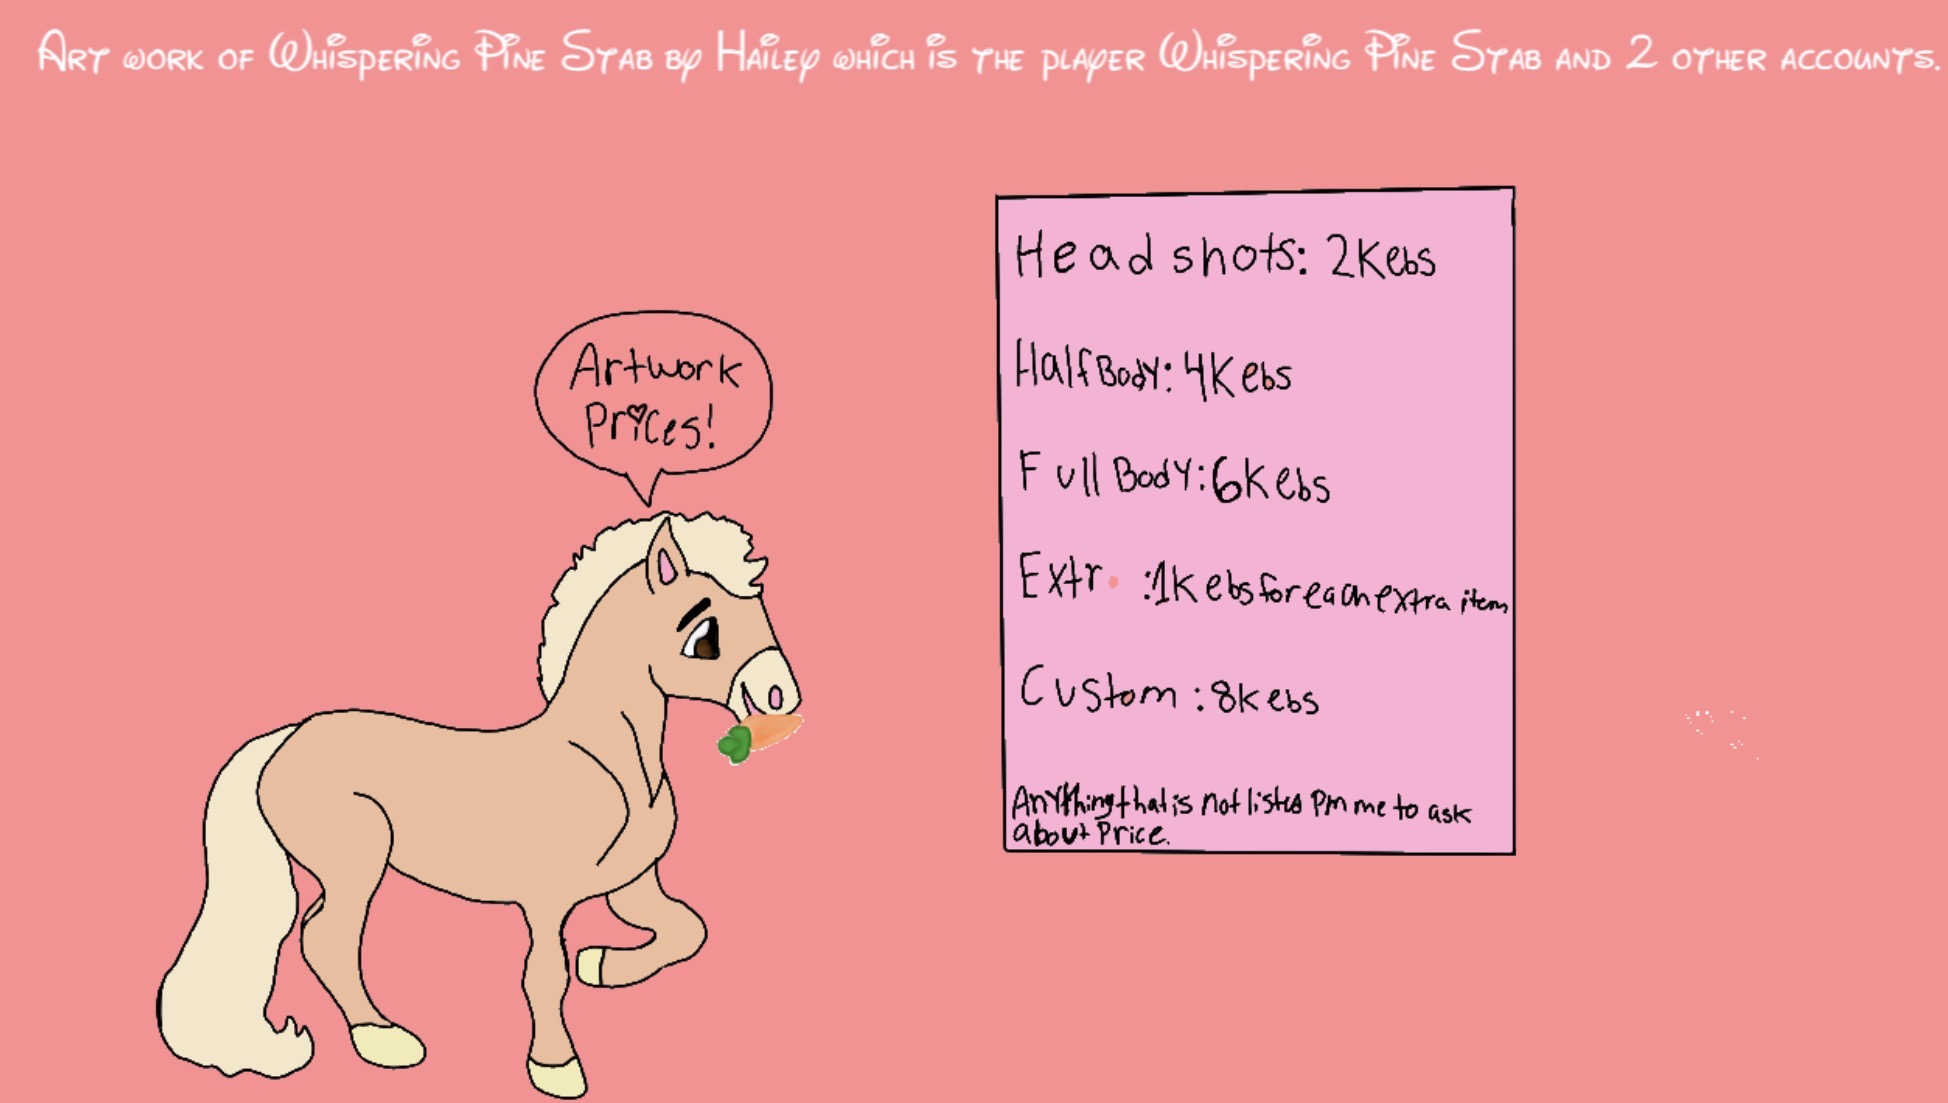 Art work of Whispering Pine Stab by Hailey which is the player Whispering Pine Stab and 2 other accounts.
Artwork
Prices!
Head shots: 2Kebs
Half Body: 4Kebs
Full Body: 6Kebs
Extr :1Kebs for each extra item
Custom : 8Kebs
Anything that is not listed Pm me to ask
about Price.